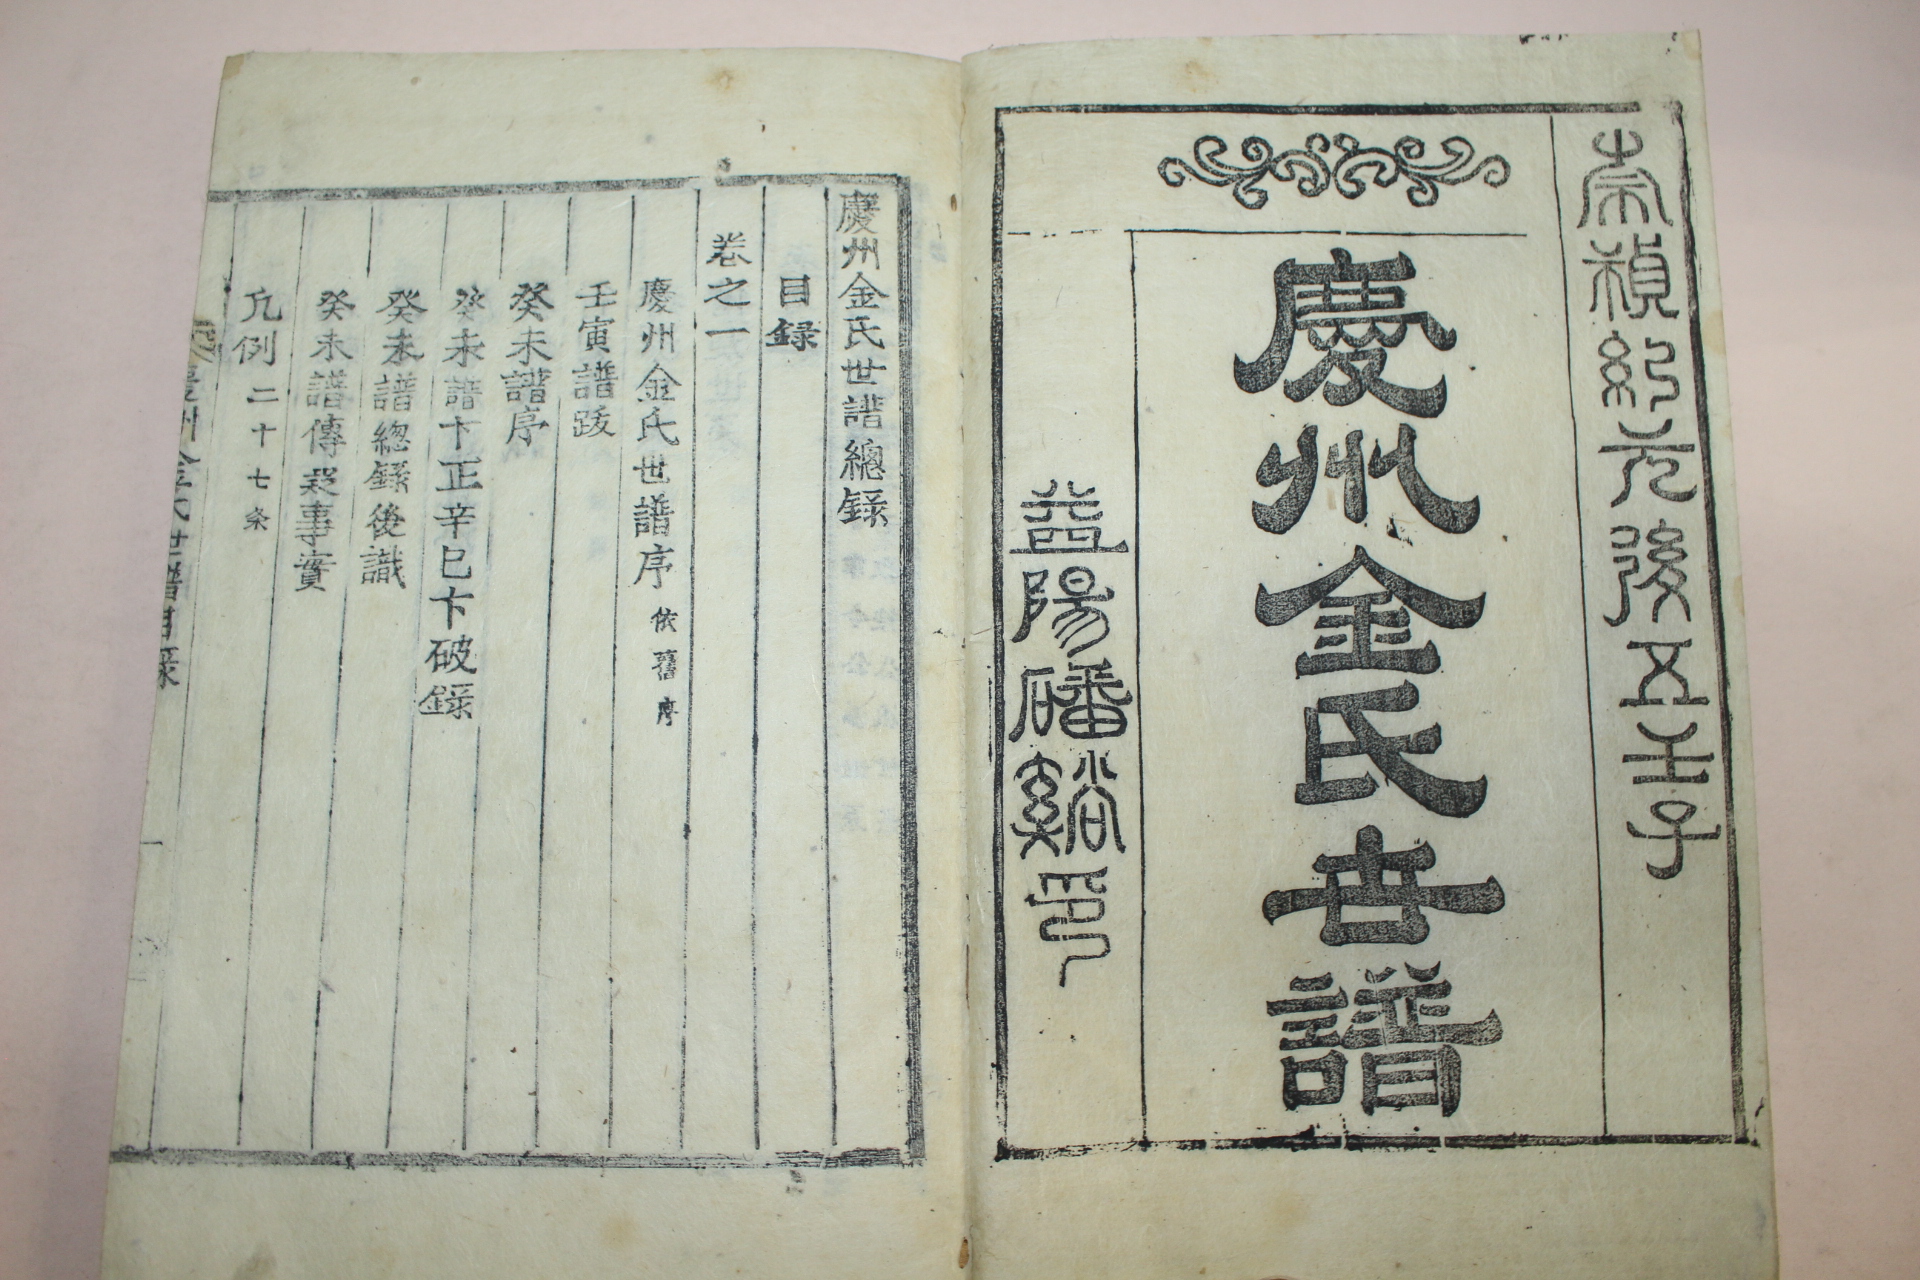 崇禎紀元後五壬子
慶州金氏世譜
益陽磻谿印
慶州金氏世譜總錄
目録
卷之一
慶州金氏世譜序 依舊序
壬寅譜跋
癸未譜序
癸未譜卞正辛巳卞破錄
癸未譜總錄後識
癸未譜傳疑事實
凡例二十七条
慶州金氏世譜目錄